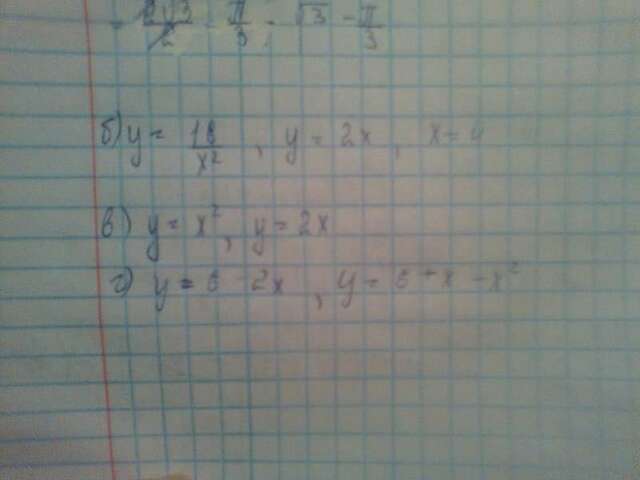 2√3/2 - π/3 = √3 - π/3
б) y = 16/x², y = 2x, x = 4
в) y = x², y = 2x
г) y = 6 - 2x, y = 6 + x - x²